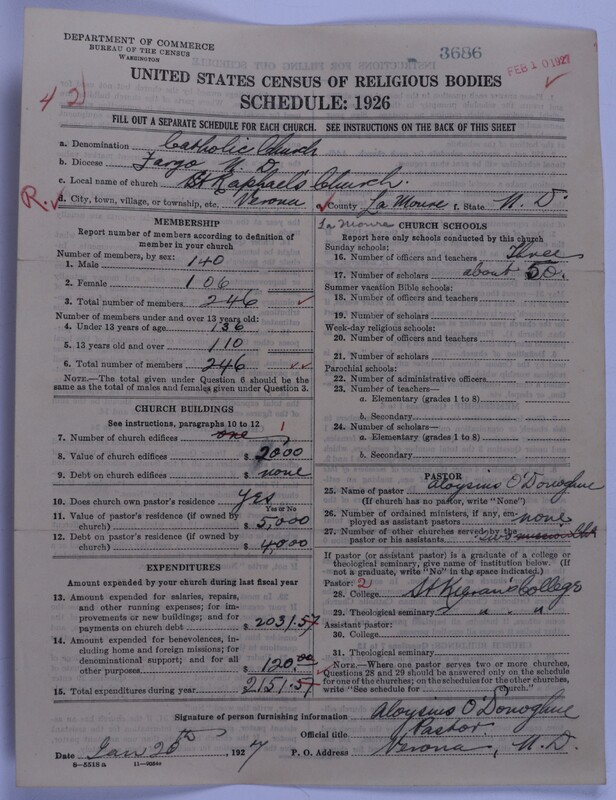 DEPARTMENT OF COMMERCE
BUREAU OF THE CENSUS
WASHINGTON
3686
FEB 10 1927
UNITED STATES CENSUS OF RELIGIOUS BODIES
SCHEDULE: 1926
FILL OUT A SEPARATE SCHEDULE FOR EACH CHURCH. SEE INSTRUCTIONS ON THE BACK OF THIS SHEET
a. Denomination Catholic Church
b. Diocese Fargo N. D.
c. Local name of church St Raphael's Church.
R. d. City, town, village, or township, etc. Verona e. County La Moure f. State N. D.
MEMBERSHIP
Report number of members according to definition of member in your church
Number of members, by sex:
1. Male 140
2. Female 106
3. Total number of members 246
Number of members under and over 13 years old:
4. Under 13 years of age 136
5. 13 years old and over 110
6. Total number of members 246
NOTE.—The total given under Question 6 should be the same as the total of males and females given under Question 3.
CHURCH BUILDINGS
See instructions, paragraphs 10 to 12
7. Number of church edifices one 1
8. Value of church edifices $ 2000
9. Debt on church edifices $ none
10. Does church own pastor's residence Yes
Yes or No
11. Value of pastor's residence (if owned by church) $ 5,000
12. Debt on pastor's residence (if owned by church) $ 4000
EXPENDITURES
Amount expended by your church during last fiscal year
13. Amount expended for salaries, repairs, and other running expenses; for improvements or new buildings; and for payments on church debt $ 2031.57
14. Amount expended for benevolences, including home and foreign missions; for denominational support; and for all other purposes $ 120.00
15. Total expenditures during year $ 2151.57
La Moure
CHURCH SCHOOLS
Report here only schools conducted by this church
Sunday schools:
16. Number of officers and teachers Three
17. Number of scholars about 50.
Summer vacation Bible schools:
18. Number of officers and teachers
19. Number of scholars
Week-day religious schools:
20. Number of officers and teachers
21. Number of scholars
Parochial schools:
22. Number of administrative officers
23. Number of teachers—
a. Elementary (grades 1 to 8)
b. Secondary
24. Number of scholars—
a. Elementary (grades 1 to 8)
b. Secondary
PASTOR
25. Name of pastor Aloysius O'Donoghue
(If church has no pastor, write "None")
26. Number of ordained ministers, if any, employed as assistant pastors none
27. Number of other churches served by the pastor or his assistants two
If pastor (or assistant pastor) is a graduate of a college or theological seminary, give name of institution below. (If not a graduate, write "No" in the space indicated.)
Pastor: 2
28. College St Kieran's College
29. Theological seminary " " "
Assistant pastor:
30. College
31. Theological seminary
NOTE.—Where one pastor serves two or more churches, Questions 28 and 29 should be answered only on the schedule for one of the churches; on the schedules for the other churches, write "See schedule for Church."
Signature of person furnishing information Aloysius O'Donoghue
Official title Pastor.
Date Jan 26th, 1927 P. O. Address Verona, N. D.
8—5518a